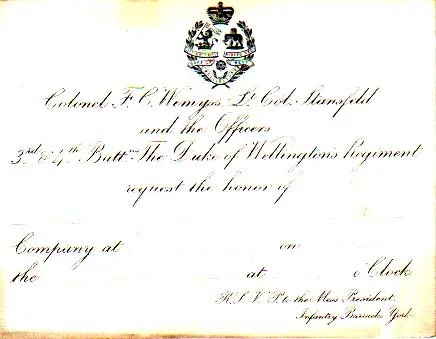 Colonel F. C. Wemyss, Lt. Col. Stansfeld
and the Officers
3rd & 4th Battns. The Duke of Wellington's Regiment
request the honor of
Company at on
the at o'Clock
R.S.V.P. to the Mess President.
Infantry Barracks York